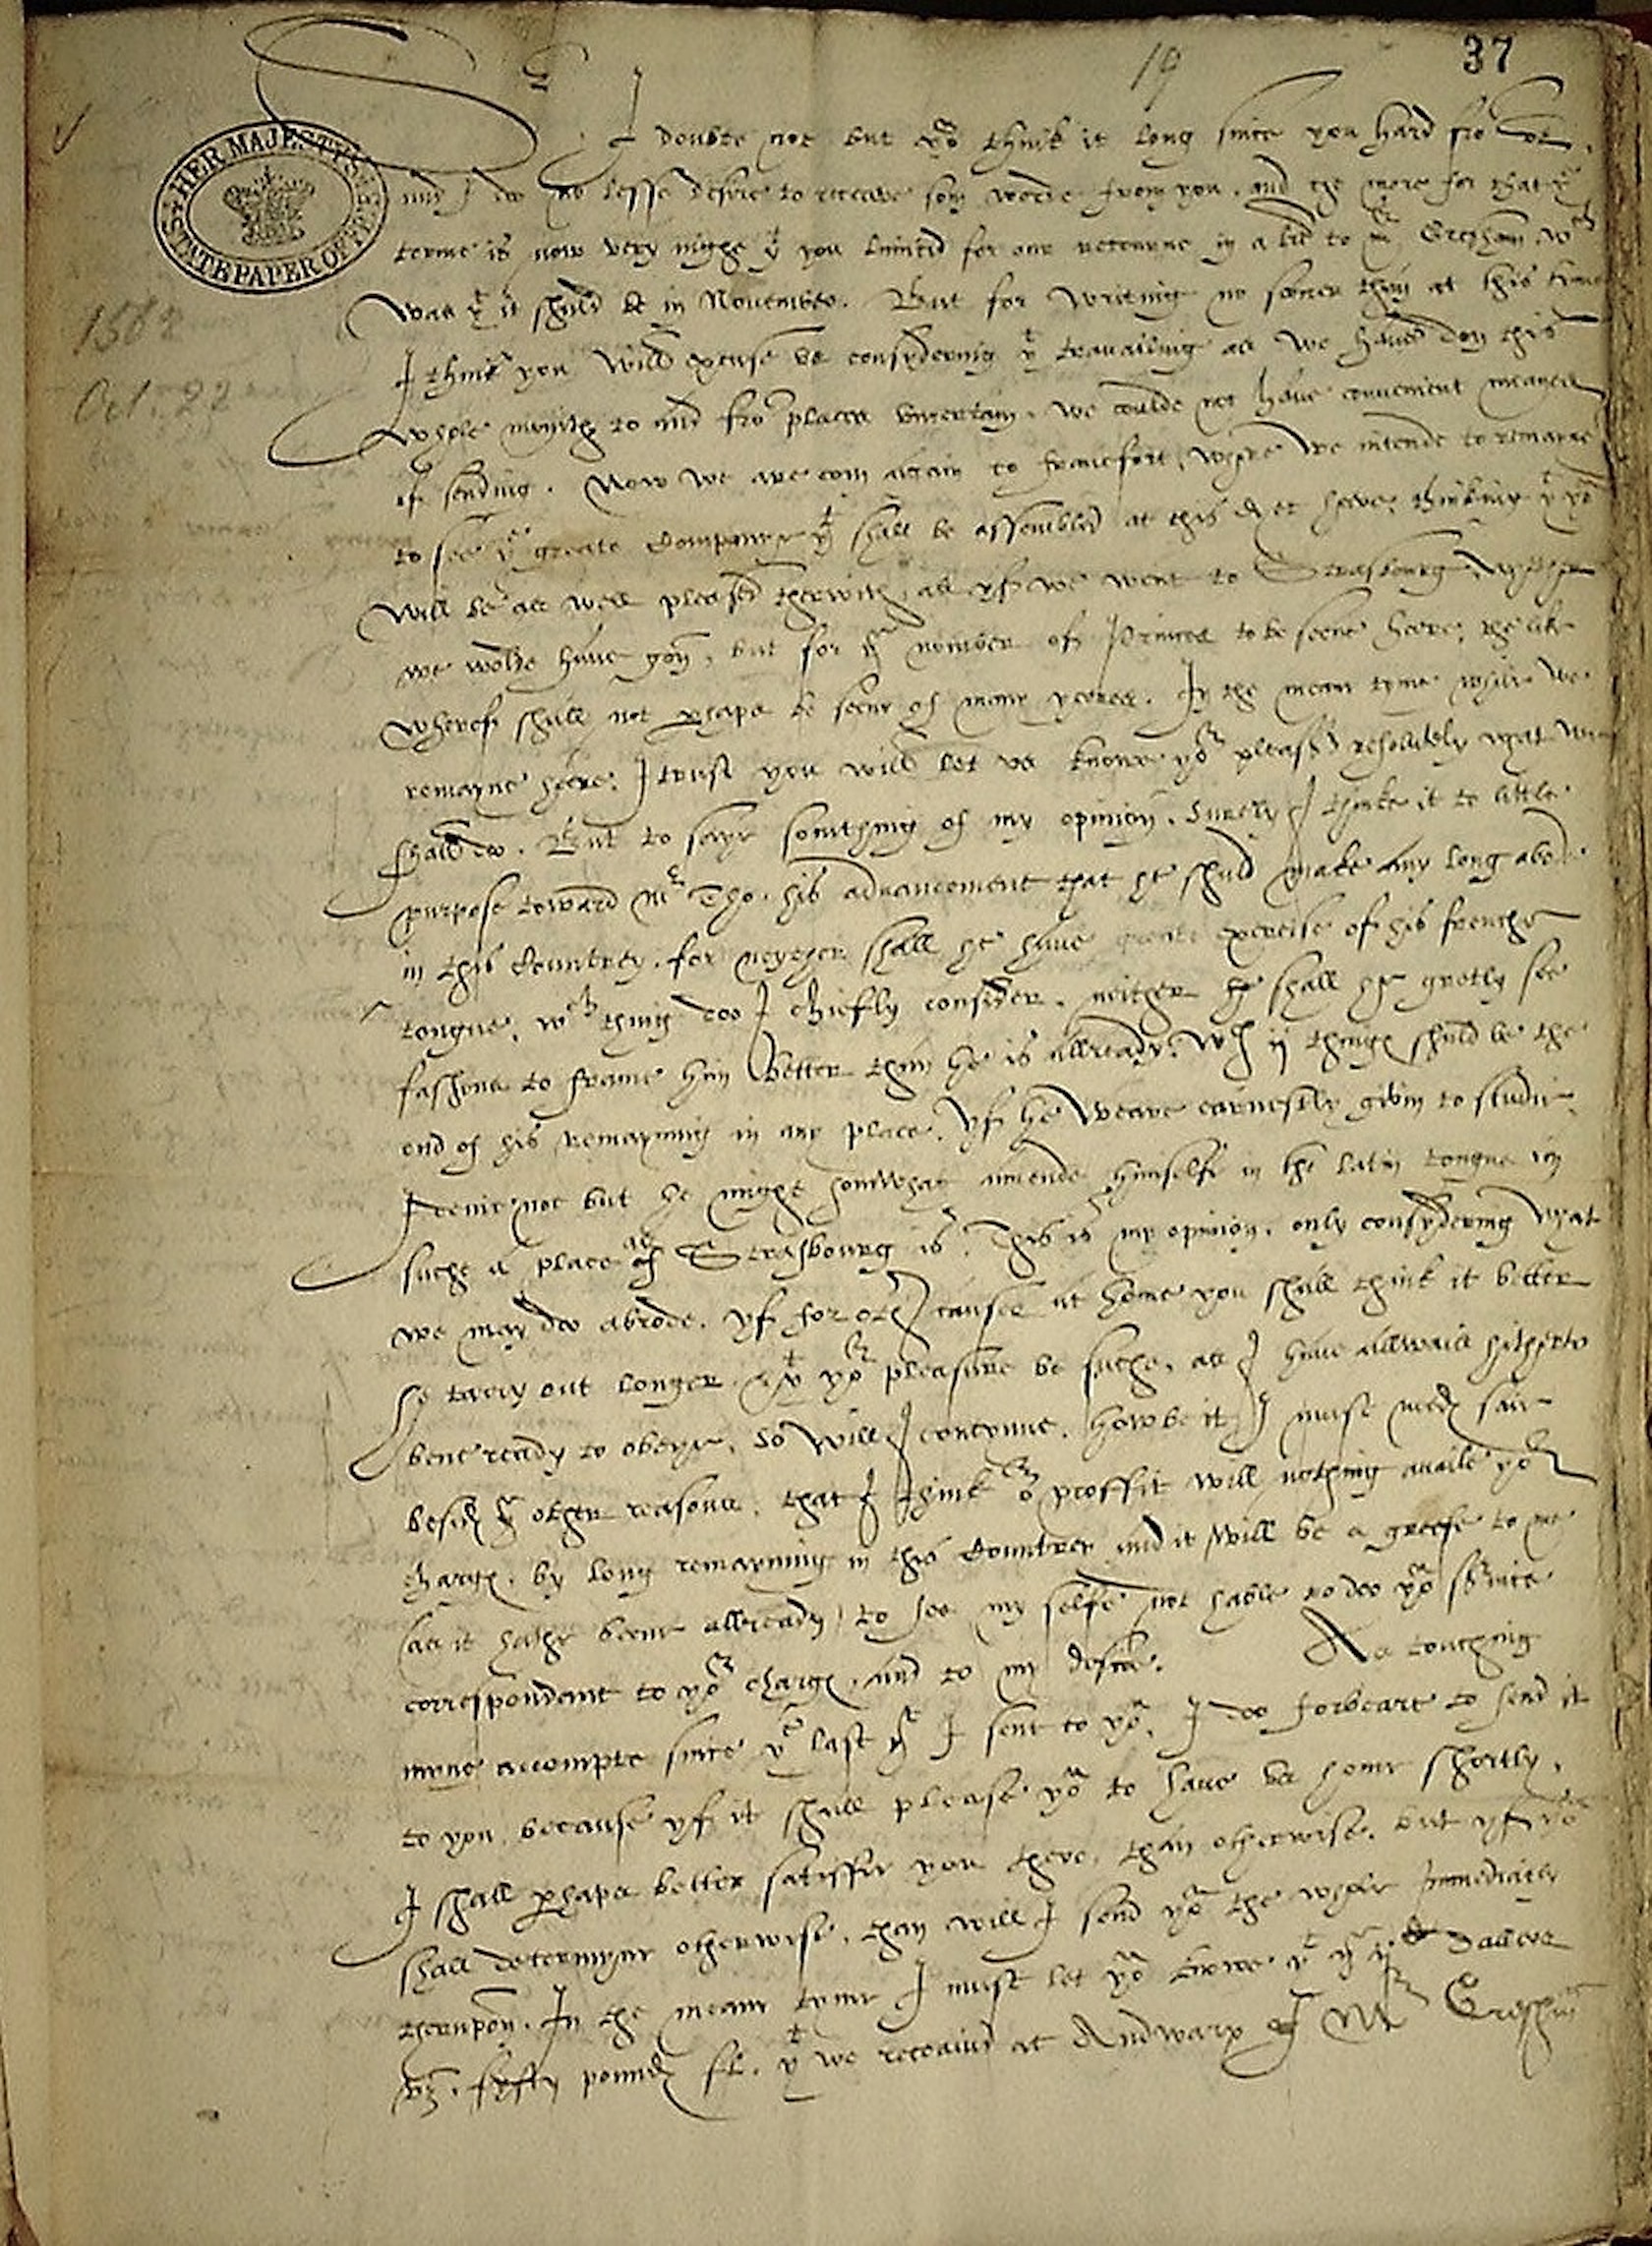 37
19
HER MAJESTY'S
STATE PAPER OFFICE
1562
Oct. 22
Sr I doubte not but yow think it long since you hard fro us,
and I do no lesse desire to receave som worde from you. and the more for that ye
terme is now very nighe yt you limited for our retourne in a lre to Mr Gresham wch
was yt it shuld be in November. But for writing no soner than at this tyme
I think you will excuse us consydering yt travailing as we have don this
whole moneth to and fro places uncertain, we coulde not have convenient meanes
of sending. Now we are com again to francfort, where we intende to remayne
to see ye greate Companye yt shall be assembled at this Diet heere, thinking yt yow
will be as well pleased therwith, as yf we went to Strasbourg, whither
we wolde have gon, but for ye nomber of Princes to be seene heere, the like
wherof shall not phaps be seene of many yeeres. In the mean tyme while we
remayne heere, I trust you will let us knowe yor pleasr resolutely what we
shall do. But to saye somthing of my opinion, Surely I thinke it to little
purpose toward Mr Tho. his advancement that he shuld make any long abode
in this Countrey. for neyther shall he have greate exercise of his frenche
tongue, wch thing doo I chiefly consider, neither shall he gretly see
fashons to frame him better than he is allready. wch ij things shuld be the
end of his remayning in any place. Yf he weare earnestly given to studie,
I denie not but he might somwhat amende himselfe in the latin tongue in
suche a place as Strasbourg is. This is my opinion, only consydering what
we may doo abrode. yf for other causes at home you shall think it better
he tarry out longer, & yt yor pleasure be suche, as I have allwais hitherto
bene ready to obeye, so will I contynue. howbeit I must needs saie
besids ye other reasons, that I think or proffit will nothing availe yor
charges, by long remayning in this Countrey and it will be a greefe to me
(as it hathe beene allready) to see my selfe not hable to doo yow service
correspondant to yor charges, and to my desire. As touching
myne accompte since ye last yt I sent to yow, I doo forbeare to send it
to you, because yf it shall please yow to have us home shortly,
I shall phaps better satisfye you there, than otherwise. but yf yow
shall determyne otherwise, than will I send yow the whole immediately
therupon. In the meane tyme I must let yow knowe yt ye Dallers
vz. fyfty pounds st. yt we receaved at Andwarp of Mr Gresham